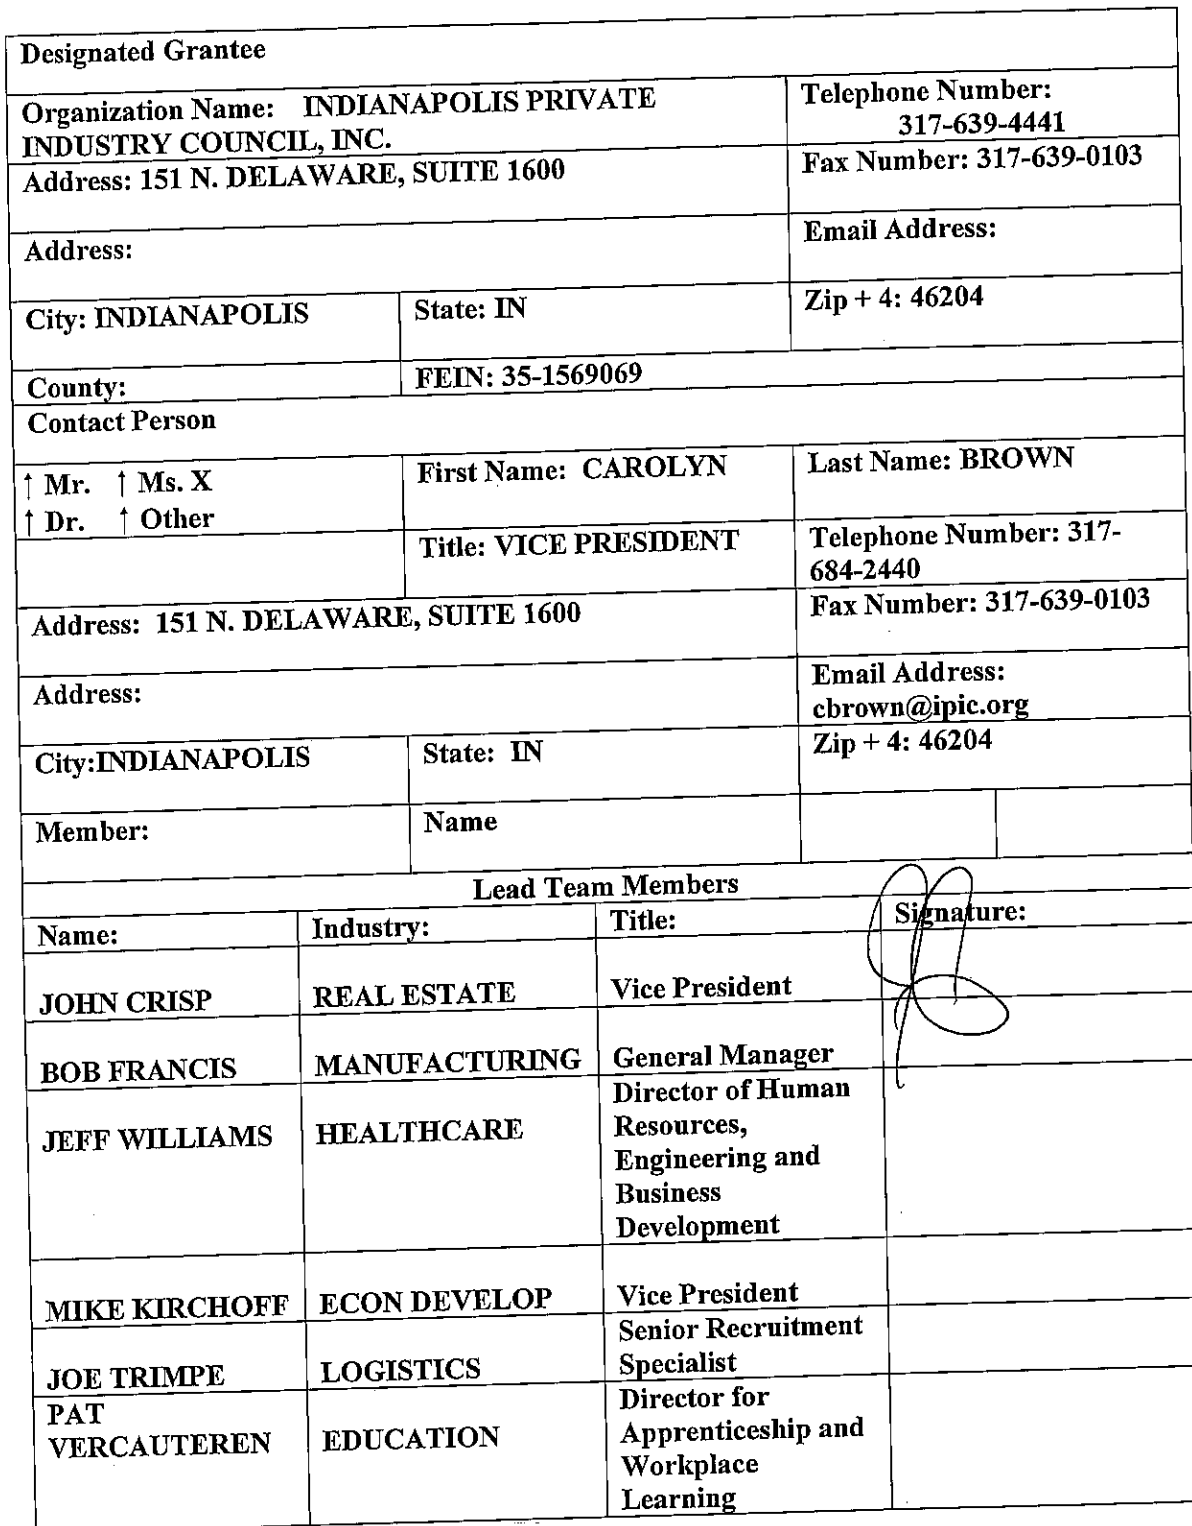 Designated Grantee
Organization Name: INDIANAPOLIS PRIVATE
INDUSTRY COUNCIL, INC.
Telephone Number:
317-639-4441
Address: 151 N. DELAWARE, SUITE 1600
Fax Number: 317-639-0103
Address:
Email Address:
City: INDIANAPOLIS
State: IN
Zip + 4: 46204
County:
FEIN: 35-1569069
Contact Person
↑ Mr. ↑ Ms. X
↑ Dr. ↑ Other
First Name: CAROLYN
Last Name: BROWN
Title: VICE PRESIDENT
Telephone Number: 317-
684-2440
Address: 151 N. DELAWARE, SUITE 1600
Fax Number: 317-639-0103
Address:
Email Address:
cbrown@ipic.org
City:INDIANAPOLIS
State: IN
Zip + 4: 46204
Member:
Name
Lead Team Members
Name:
Industry:
Title:
Signature:
JOHN CRISP
REAL ESTATE
Vice President
BOB FRANCIS
MANUFACTURING
General Manager
JEFF WILLIAMS
HEALTHCARE
Director of Human
Resources,
Engineering and
Business
Development
MIKE KIRCHOFF
ECON DEVELOP
Vice President
JOE TRIMPE
LOGISTICS
Senior Recruitment
Specialist
PAT
VERCAUTEREN
EDUCATION
Director for
Apprenticeship and
Workplace
Learning